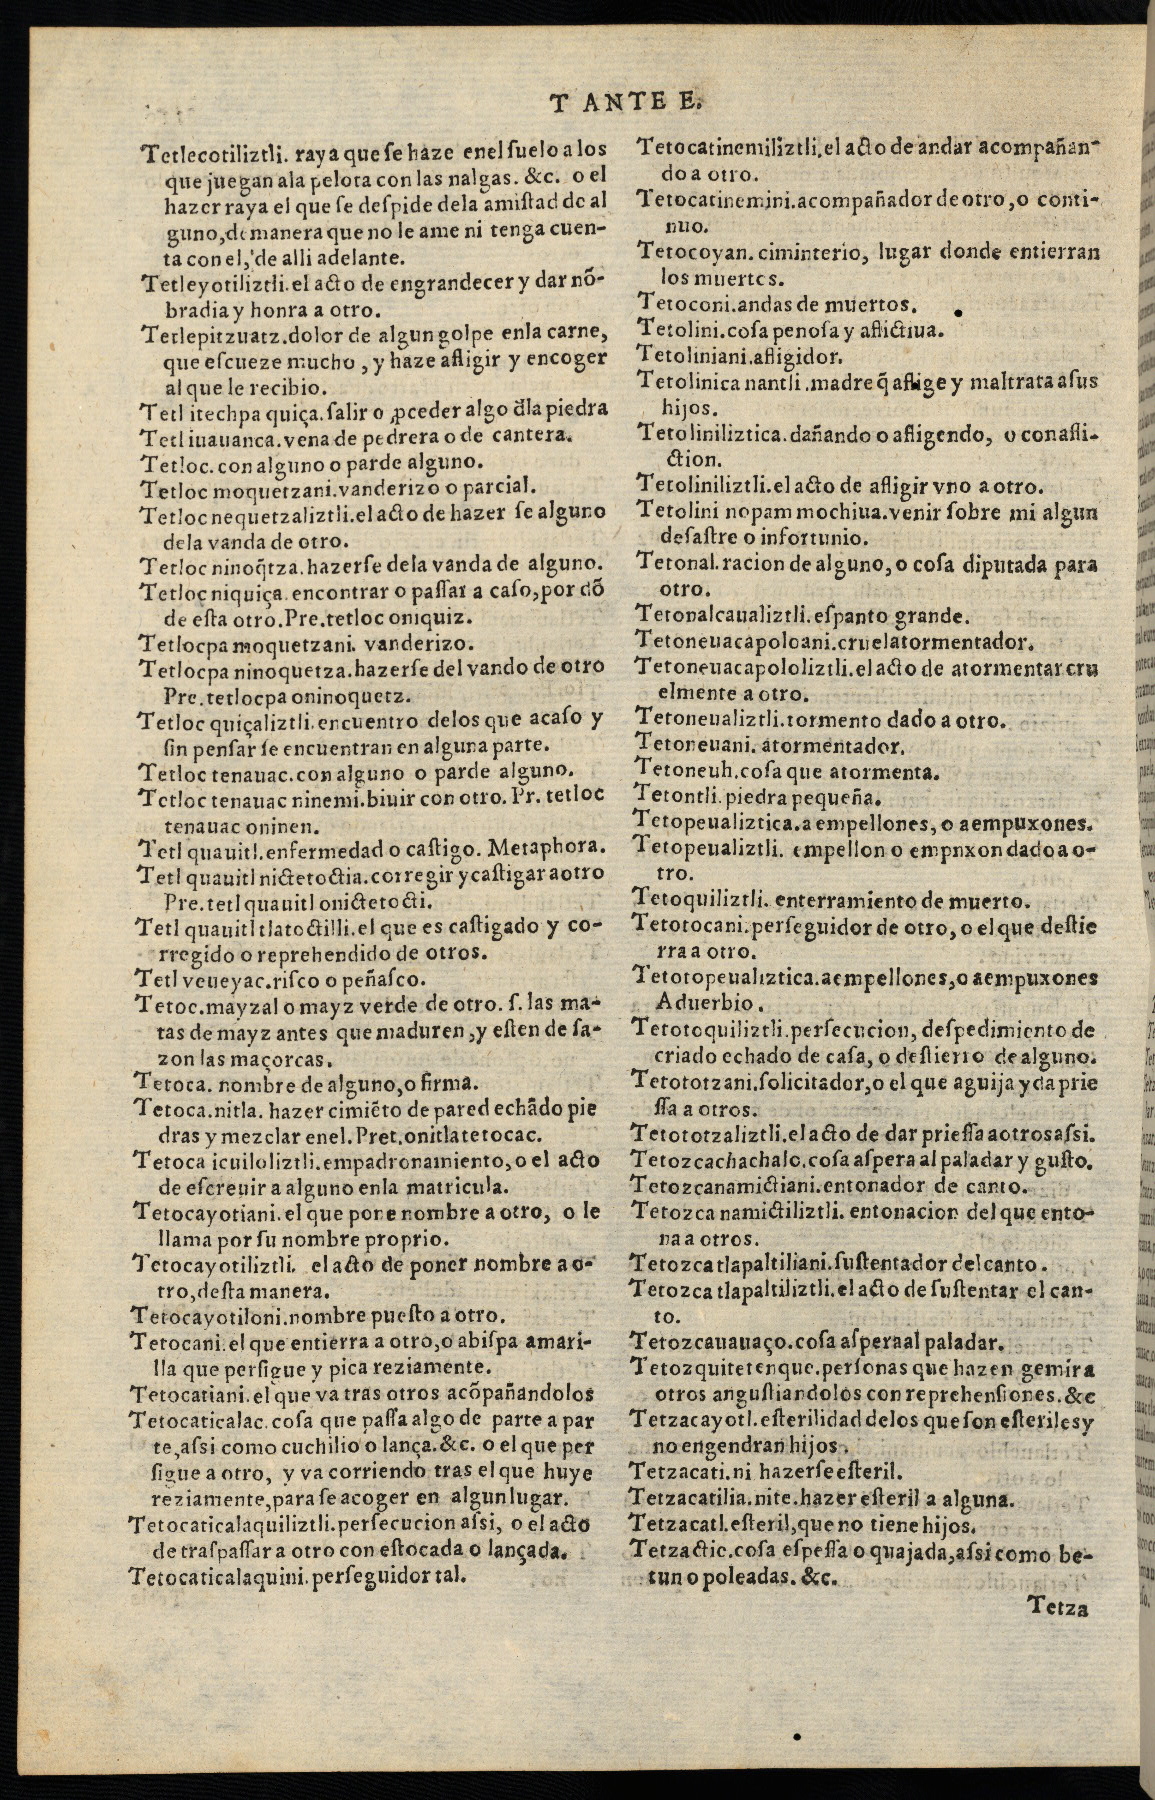 T ANTE E.
Tetlecotiliztli. raya que se haze enel suelo a los
que juegan ala pelota con las nalgas. &c. o el
hazer raya el que se despide dela amistad de al
guno, demanera que no le ame ni tenga cuen-
ta con el, de alli adelante.
Tetleyotiliztli. el acto de engrandecer y dar nõ-
bradia y honra a otro.
Tetlepitzuatz. dolor de algun golpe enla carne,
que escueze mucho, y haze afligir y encoger
al que le recibio.
Tetl itechpa quiça. salir o ꝓceder algo d̃la piedra
Tetl iuauanca. vena de pedrera o de cantera.
Tetloc. con alguno o par de alguno.
Tetloc moquetzani. vanderizo o parcial.
Tetloc nequetzaliztli. el acto de hazer se alguno
dela vanda de otro.
Tetloc ninoq̃tza. hazerse dela vanda de alguno.
Tetloc niquiça. encontrar o passar a caso, por dõ
de esta otro. Pre. tetloc oniquiz.
Tetlocpa moquetzani. vanderizo.
Tetlocpa ninoquetza. hazerse del vando de otro
Pre. tetlocpa oninoquetz.
Tetloc quiçaliztli. encuentro delos que acaso y
sin pensar se encuentran en alguna parte.
Tetloc tenauac. con alguno o par de alguno.
Tetloc tenauac ninemi. biuir con otro. Pr. tetloc
tenauac oninen.
Tetl quauitl. enfermedad o castigo. Metaphora.
Tetl quauitl nictetoctia. corregir y castigar a otro
Pre. tetl quauitl onictetocti.
Tetl quauitl tlatoctilli. el que es castigado y co-
rregido o reprehendido de otros.
Tetl veueyac. risco o peñasco.
Tetoc. mayzal o mayz verde de otro. s. las ma-
tas de mayz antes que maduren, y esten de sa-
zon las maçorcas.
Tetoca. nombre de alguno, o firma.
Tetoca. nitla. hazer cimiẽto de pared echãdo pie
dras y mezclar enel. Pret. onitlatetocac.
Tetoca icuiloliztli. empadronamiento, o el acto
de escreuir a alguno enla matricula.
Tetocayotiani. el que pone nombre a otro, o le
llama por su nombre proprio.
Tetocayotiliztli. el acto de poner nombre a o-
tro, desta manera.
Tetocayotiloni. nombre puesto a otro.
Tetocani. el que entierra a otro, o abispa amari-
lla que persigue y pica reziamente.
Tetocatiani. el que va tras otros acõpañandolos
Tetocaticalac. cosa que passa algo de parte a par
te, assi como cuchillo o lança. &c. o el que per
sigue a otro, y va corriendo tras el que huye
reziamente, para se acoger en algun lugar.
Tetocaticalaquiliztli. persecucion assi, o el acto
de traspassar a otro con estocada o lançada.
Tetocaticalaquini. perseguidor tal.
Tetocatinemiliztli. el acto de andar acompañan-
do a otro.
Tetocatinemini. acompañador de otro, o conti-
nuo.
Tetocoyan. ciminterio, lugar donde entierran
los muertos.
Tetoconi. andas de muertos.
Tetolini. cosa penosa y aflictiua.
Tetoliniani. afligidor.
Tetolinica nantli. madre q̃ aflige y maltrata a sus
hijos.
Tetoliniliztica. dañando o afligendo, o con afli-
ction.
Tetoliniliztli. el acto de afligir vno a otro.
Tetolini nopam mochiua. venir sobre mi algun
desastre o infortunio.
Tetonal. racion de alguno, o cosa diputada para
otro.
Tetonalcaualiztli. espanto grande.
Tetoneuacapoloani. cruel atormentador.
Tetoneuacapololiztli. el acto de atormentar cru
elmente a otro.
Tetoneualiztli. tormento dado a otro.
Tetoneuani. atormentador.
Tetoneuh. cosa que atormenta.
Tetontli. piedra pequeña.
Tetopeualiztica. a empellones, o a empuxones.
Tetopeualiztli. empellon o empnxon dado a o-
tro.
Tetoquiliztli. enterramiento de muerto.
Tetotocani. perseguidor de otro, o el que destie
rra a otro.
Tetotopeualiztica. a empellones, o a empuxones
Aduerbio.
Tetotoquiliztli. persecucion, despedimiento de
criado echado de casa, o destierro de alguno.
Tetototzani. solicitador, o el que aguija y da prie
ssa a otros.
Tetototzaliztli. el acto de dar priessa a otros assi.
Tetozcachachalo. cosa aspera al paladar y gusto.
Tetozcanamictiani. entonador de canto.
Tetozca namictiliztli. entonacion del que ento-
na a otros.
Tetozca tlapaltiliani. sustentador del canto.
Tetozca tlapaltiliztli. el acto de sustentar el can-
to.
Tetozcauauaço. cosa aspera al paladar.
Tetozquitetenque. personas que hazen gemir a
otros angustiandolos con reprehensiones. &c
Tetzacayotl. esterilidad delos que son esteriles y
no engendran hijos.
Tetzacati. ni hazerse esteril.
Tetzacatilia. nite. hazer esteril a alguna.
Tetzacatl. esteril, que no tiene hijos.
Tetzactic. cosa espessa o quajada, assi como be-
tun o poleadas. &c.
Tetza